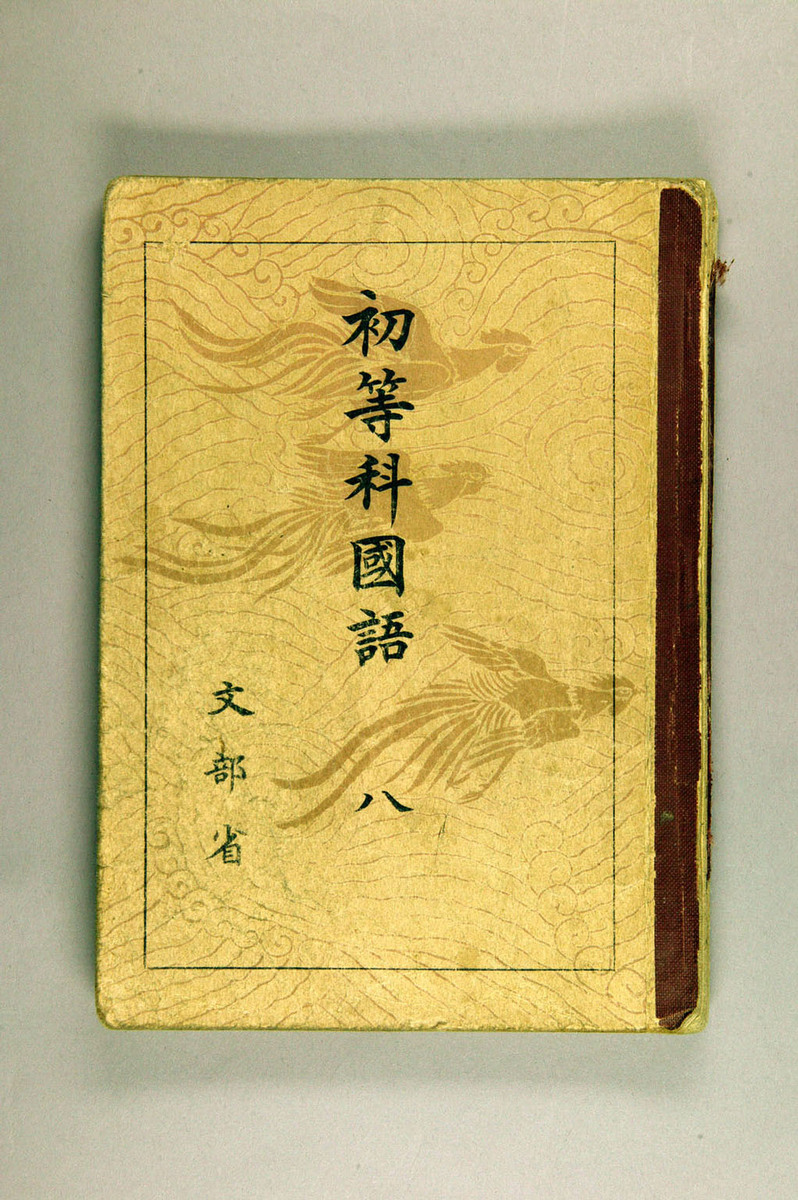 初等科國語 八
文部省